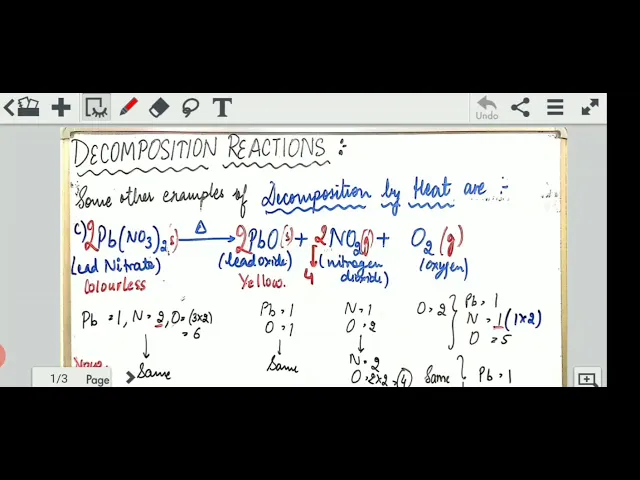 Undo
DECOMPOSITION REACTIONS :-
Some other examples of Decomposition by Heat are :-
c) 2Pb(NO3)2(s) Δ→ 2PbO(s) + 2NO2(g) + O2(g)
4
(Lead Nitrate) (lead oxide) (nitrogen dioxide) (oxygen)
Colourless Yellow.
Pb = 1, N = 2, O = (3x2) = 6
Pb = 1
O = 1
N = 1
O = 2
O = 2
Pb = 1
N = 1 (1x2)
O = 5
Same
Same
N = 2
O = 2x2 = 4
Same
Pb = 1
1/3 Page